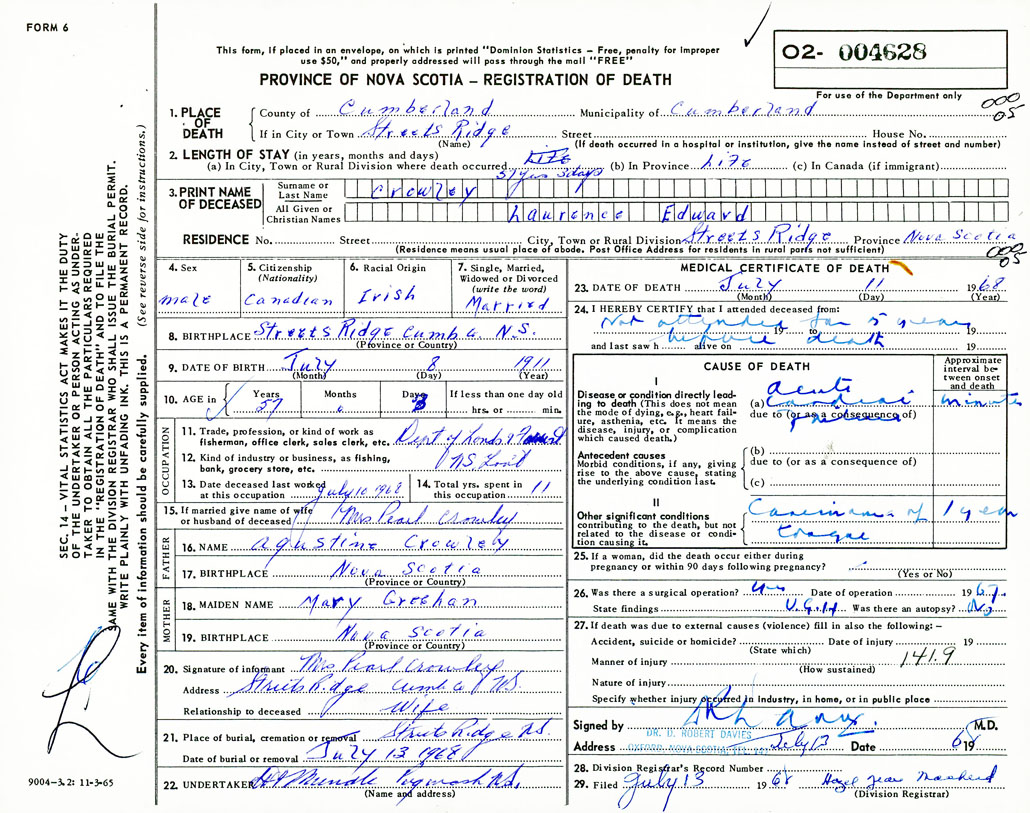 FORM 6
This form, if placed in an envelope, on which is printed "Dominion Statistics – Free, penalty for improper
use $50," and properly addressed will pass through the mail "FREE"
PROVINCE OF NOVA SCOTIA – REGISTRATION OF DEATH
O2- 004628
For use of the Department only
000
05
1. PLACE OF DEATH
County of Cumberland Municipality of Cumberland
If in City or Town Streets Ridge Street House No.
(Name) (If death occurred in a hospital or institution, give the name instead of street and number)
2. LENGTH OF STAY (in years, months and days)
(a) In City, Town or Rural Division where death occurred Life (b) In Province Life (c) In Canada (if immigrant)
57 yrs 3 days
3. PRINT NAME OF DECEASED
Surname or Last Name Crowley
All Given or Christian Names Laurence Edward
RESIDENCE No. Street City, Town or Rural Division Streets Ridge Province Nova Scotia
(Residence means usual place of abode. Post Office Address for residents in rural parts not sufficient)
000
05
4. Sex male
5. Citizenship (Nationality) Canadian
6. Racial Origin Irish
7. Single, Married, Widowed or Divorced (write the word) Married
8. BIRTHPLACE Streets Ridge Cumb Co. N.S.
(Province or Country)
9. DATE OF BIRTH July 8 1911
(Month) (Day) (Year)
10. AGE in Years Months Days If less than one day old
57 3 hrs. or min.
OCCUPATION
11. Trade, profession, or kind of work as fisherman, office clerk, sales clerk, etc. Dept of Lands & Forest
12. Kind of industry or business, as fishing, bank, grocery store, etc. N.S. Gov't
13. Date deceased last worked at this occupation July 10 1968
14. Total yrs. spent in this occupation 11
15. If married give name of wife or husband of deceased Mrs Pearl Crowley
FATHER
16. NAME Agustine Crowley
17. BIRTHPLACE Nova Scotia
(Province or Country)
MOTHER
18. MAIDEN NAME Mary
19. BIRTHPLACE Nova Scotia
(Province or Country)
20. Signature of informant Mrs Pearl Crowley
Address Streets Ridge Cumb Co N.S.
Relationship to deceased Wife
21. Place of burial, cremation or removal Streets Ridge N.S.
Date of burial or removal July 13 1968
22. UNDERTAKER Pugwash N.S.
(Name and address)
MEDICAL CERTIFICATE OF DEATH
23. DATE OF DEATH July 11 1968
(Month) (Day) (Year)
24. I HEREBY CERTIFY that I attended deceased from:
Not attended for 5 years 19 to 19
and last saw h alive on before death 19
CAUSE OF DEATH
Approximate interval between onset and death
I
Disease or condition directly leading to death (This does not mean the mode of dying, e.g., heart failure, asthenia, etc. It means the disease, injury, or complication which caused death.)
(a) acute Cardiac minutes
due to (or as a consequence of) Failure
Antecedent causes
Morbid conditions, if any, giving rise to the above cause, stating the underlying condition last.
(b)
due to (or as a consequence of)
(c)
II
Other significant conditions contributing to the death, but not related to the disease or condition causing it.
Carcinoma of 1 year
tongue
25. If a woman, did the death occur either during
pregnancy or within 90 days following pregnancy?
(Yes or No)
26. Was there a surgical operation? yes Date of operation 1967
State findings V.G.H. Was there an autopsy? No
27. If death was due to external causes (violence) fill in also the following: –
Accident, suicide or homicide? Date of injury 19
(State which)
Manner of injury 141.9
(How sustained)
Nature of injury
Specify whether injury occurred in Industry, in home, or in public place
Signed by M.D.
DR. D. ROBERT DAVIES
Address OXFORD, NOVA SCOTIA July 13 Date 68 19
28. Division Registrar's Record Number
29. Filed July 13 1968 Hazel Jean
(Division Registrar)
SEC. 14 – VITAL STATISTICS ACT MAKES IT THE DUTY
OF THE UNDERTAKER OR PERSON ACTING AS UNDER-
TAKER TO OBTAIN ALL THE PARTICULARS REQUIRED
IN THE "REGISTRATION OF DEATH" AND TO FILE THE
SAME WITH THE DIVISION REGISTRAR WHO SHALL ISSUE THE BURIAL PERMIT.
WRITE PLAINLY WITH UNFADING INK. THIS IS A PERMANENT RECORD.
Every item of information should be carefully supplied. (See reverse side for instructions.)
9004-3.2: 11-3-65